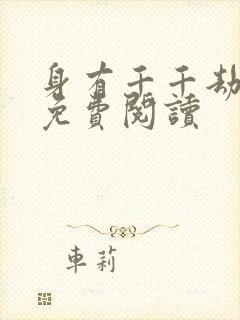 身有千千劫
免費閱讀
車莉